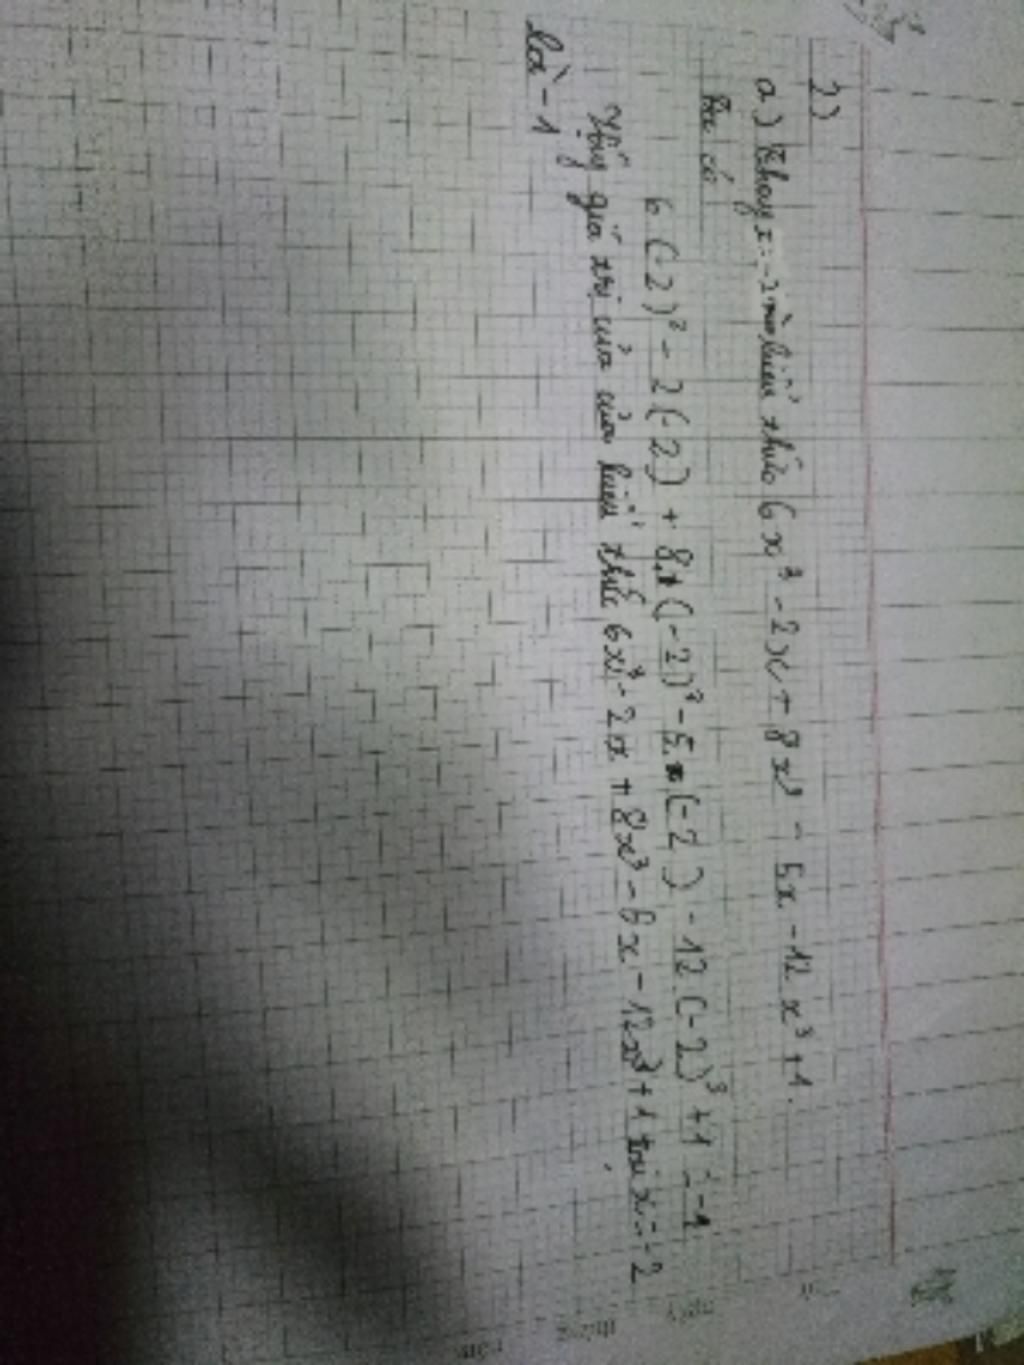 2)
a) Thay x = -2 vào biểu thức 6x³ - 2x + 8x³ - 5x - 12x³ + 1.
Ta có
6(-2)³ - 2(-2) + 8.(-2)³ - 5.(-2) - 12(-2)³ + 1 = -1
Vậy giá trị của của biểu thức 6x³ - 2x + 8x³ - 5x - 12x³ + 1 tại x = -2
là -1